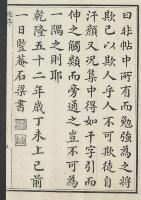 曰非帖中所有而勉強為之將
欺已以欺人乎人不可欺徒自
汗顏又況集中得如干字引而
伸之觸類而旁通之豈不可為
一隅之則耶
乾隆五十二年歲丁未上巳前
一日鑒菴石梁書